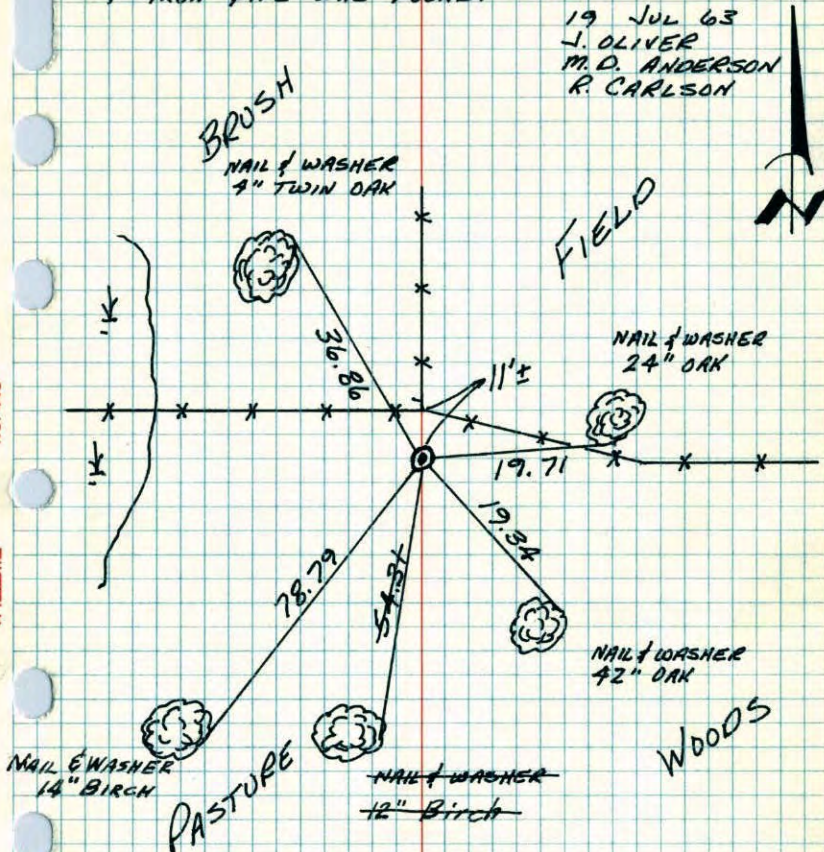 19 JUL 63
J. OLIVER
M.D. ANDERSON
R. CARLSON
BRUSH
NAIL & WASHER
4" TWIN OAK
FIELD
N
NAIL & WASHER
24" OAK
36.86
11'±
19.71
19.34
78.79
54.31
NAIL & WASHER
42" OAK
WOODS
NAIL & WASHER
14" BIRCH
PASTURE
NAIL & WASHER
12" Birch